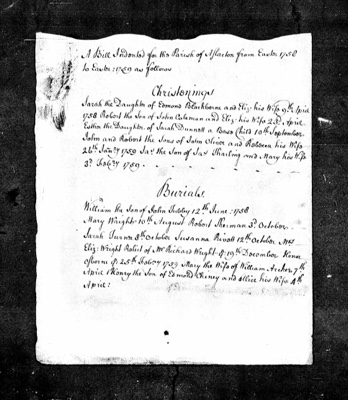 A Bill Indented for the Parish of Aslacton from Easter 1758
to Easter 1759 as follows
Christenings
Sarah the Daughter of Edmond and Eliz: his Wife 9th April
1758 Robert the Son of John Coleman and Eliz: his Wife 23d April
Esther the Daughter of Sarah Dunnett a Base Child 10th September
John and Robert the Sons of John Oliver and Rebecca his Wife
26th Janry 1759 Jas. the Son of Jas. Sharling and Mary his Wife
3d Febry 1759.
Burials.
William the Son of John 12th June 1758
Mary Wright 10th August Robert Sherman 3d October
Sarah Turner 8th October Susanna 12th October Mrs
Eliz: Wright Relict of Mr Richard Wright 19th December
Osborne 25th Febry 1759 Mary the Wife of William Archer 7th
April Henry the Son of Edmond Cheney and Alice his Wife 4th
April: